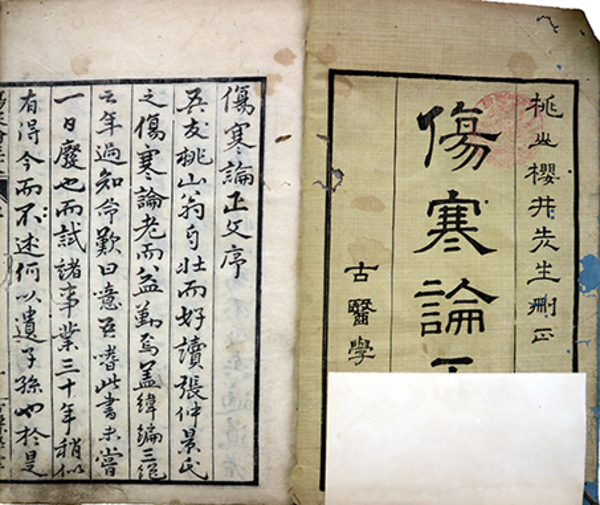 桃山櫻井先生刪正
傷寒論正
古醫學
傷寒論正文序
吾友桃山翁自壯而好讀張仲景氏
之傷寒論老而益勤焉蓋緯編三絕
云年過知命歎曰噫吾嗜此書未嘗
一日廢也而試諸事業三十年稍似
有得今而不述何以遺子孫也於是